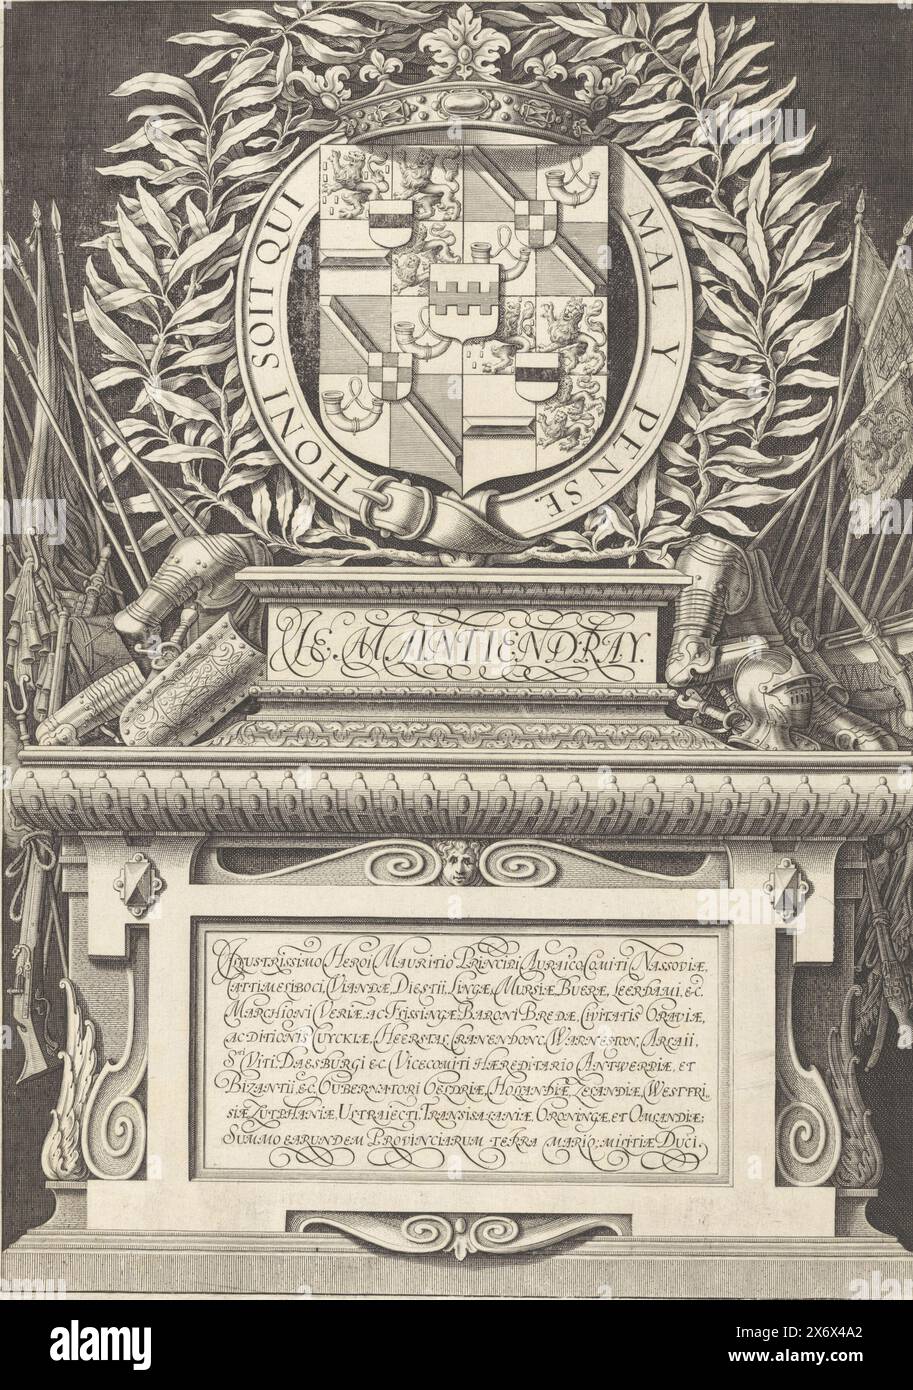 HONI SOIT QUI MAL Y PENSE.
IE. MAINTIENDRAY.
ILLUSTRISSIMO HEROI MAURITIO PRINCIPI AURAICO, COMITI NASSOVIÆ,
CATTIMELIBOCI, VIANDÆ, DIESTII, LINGÆ, MURSIÆ, BUERÆ, LEERDAMI, &C.
MARCHIONI VERIÆ, AC FLISSINGÆ, BARONI BREDÆ, CIVITATIS GRAVIÆ,
AC DITIONIS CUYCKIÆ, HEERSTAL, CRANENDONC, WARNESTON, ARLAII,
Sti VITI, DAESBURGI &C. VICECOMITI HÆREDITARIO ANTWERPIÆ, ET
BIZANTII, &C. GUBERNATORI GELDRIÆ, HOLLANDIÆ, ZELANDIÆ, WESTFRI,
SIÆ, ZUTPHANIÆ, ULTRAIECTI, TRANSISALANIÆ, GRONINGÆ, ET OMLANDIÆ:
SUMMO EARUNDEM PROVINCIARUM TERRA MARIQ; MILITIÆ DUCI.
alamy
Image ID: 2X6X4A2
www.alamy.com